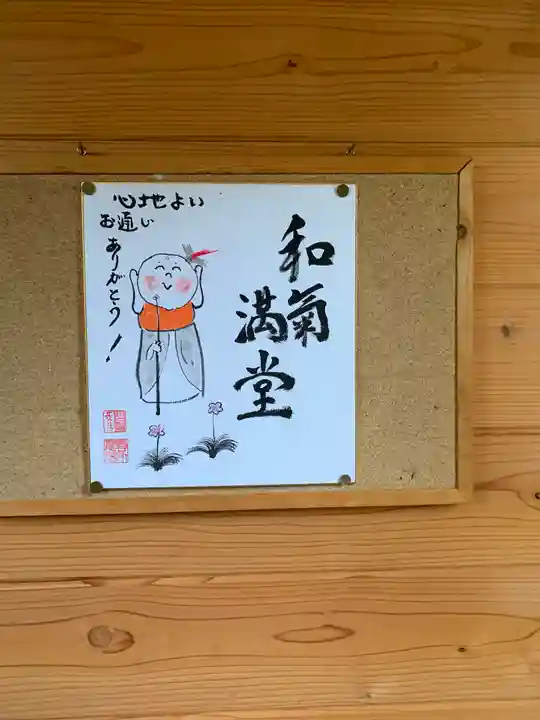 和氣
満堂
心地よい
お通い
ありがとう！